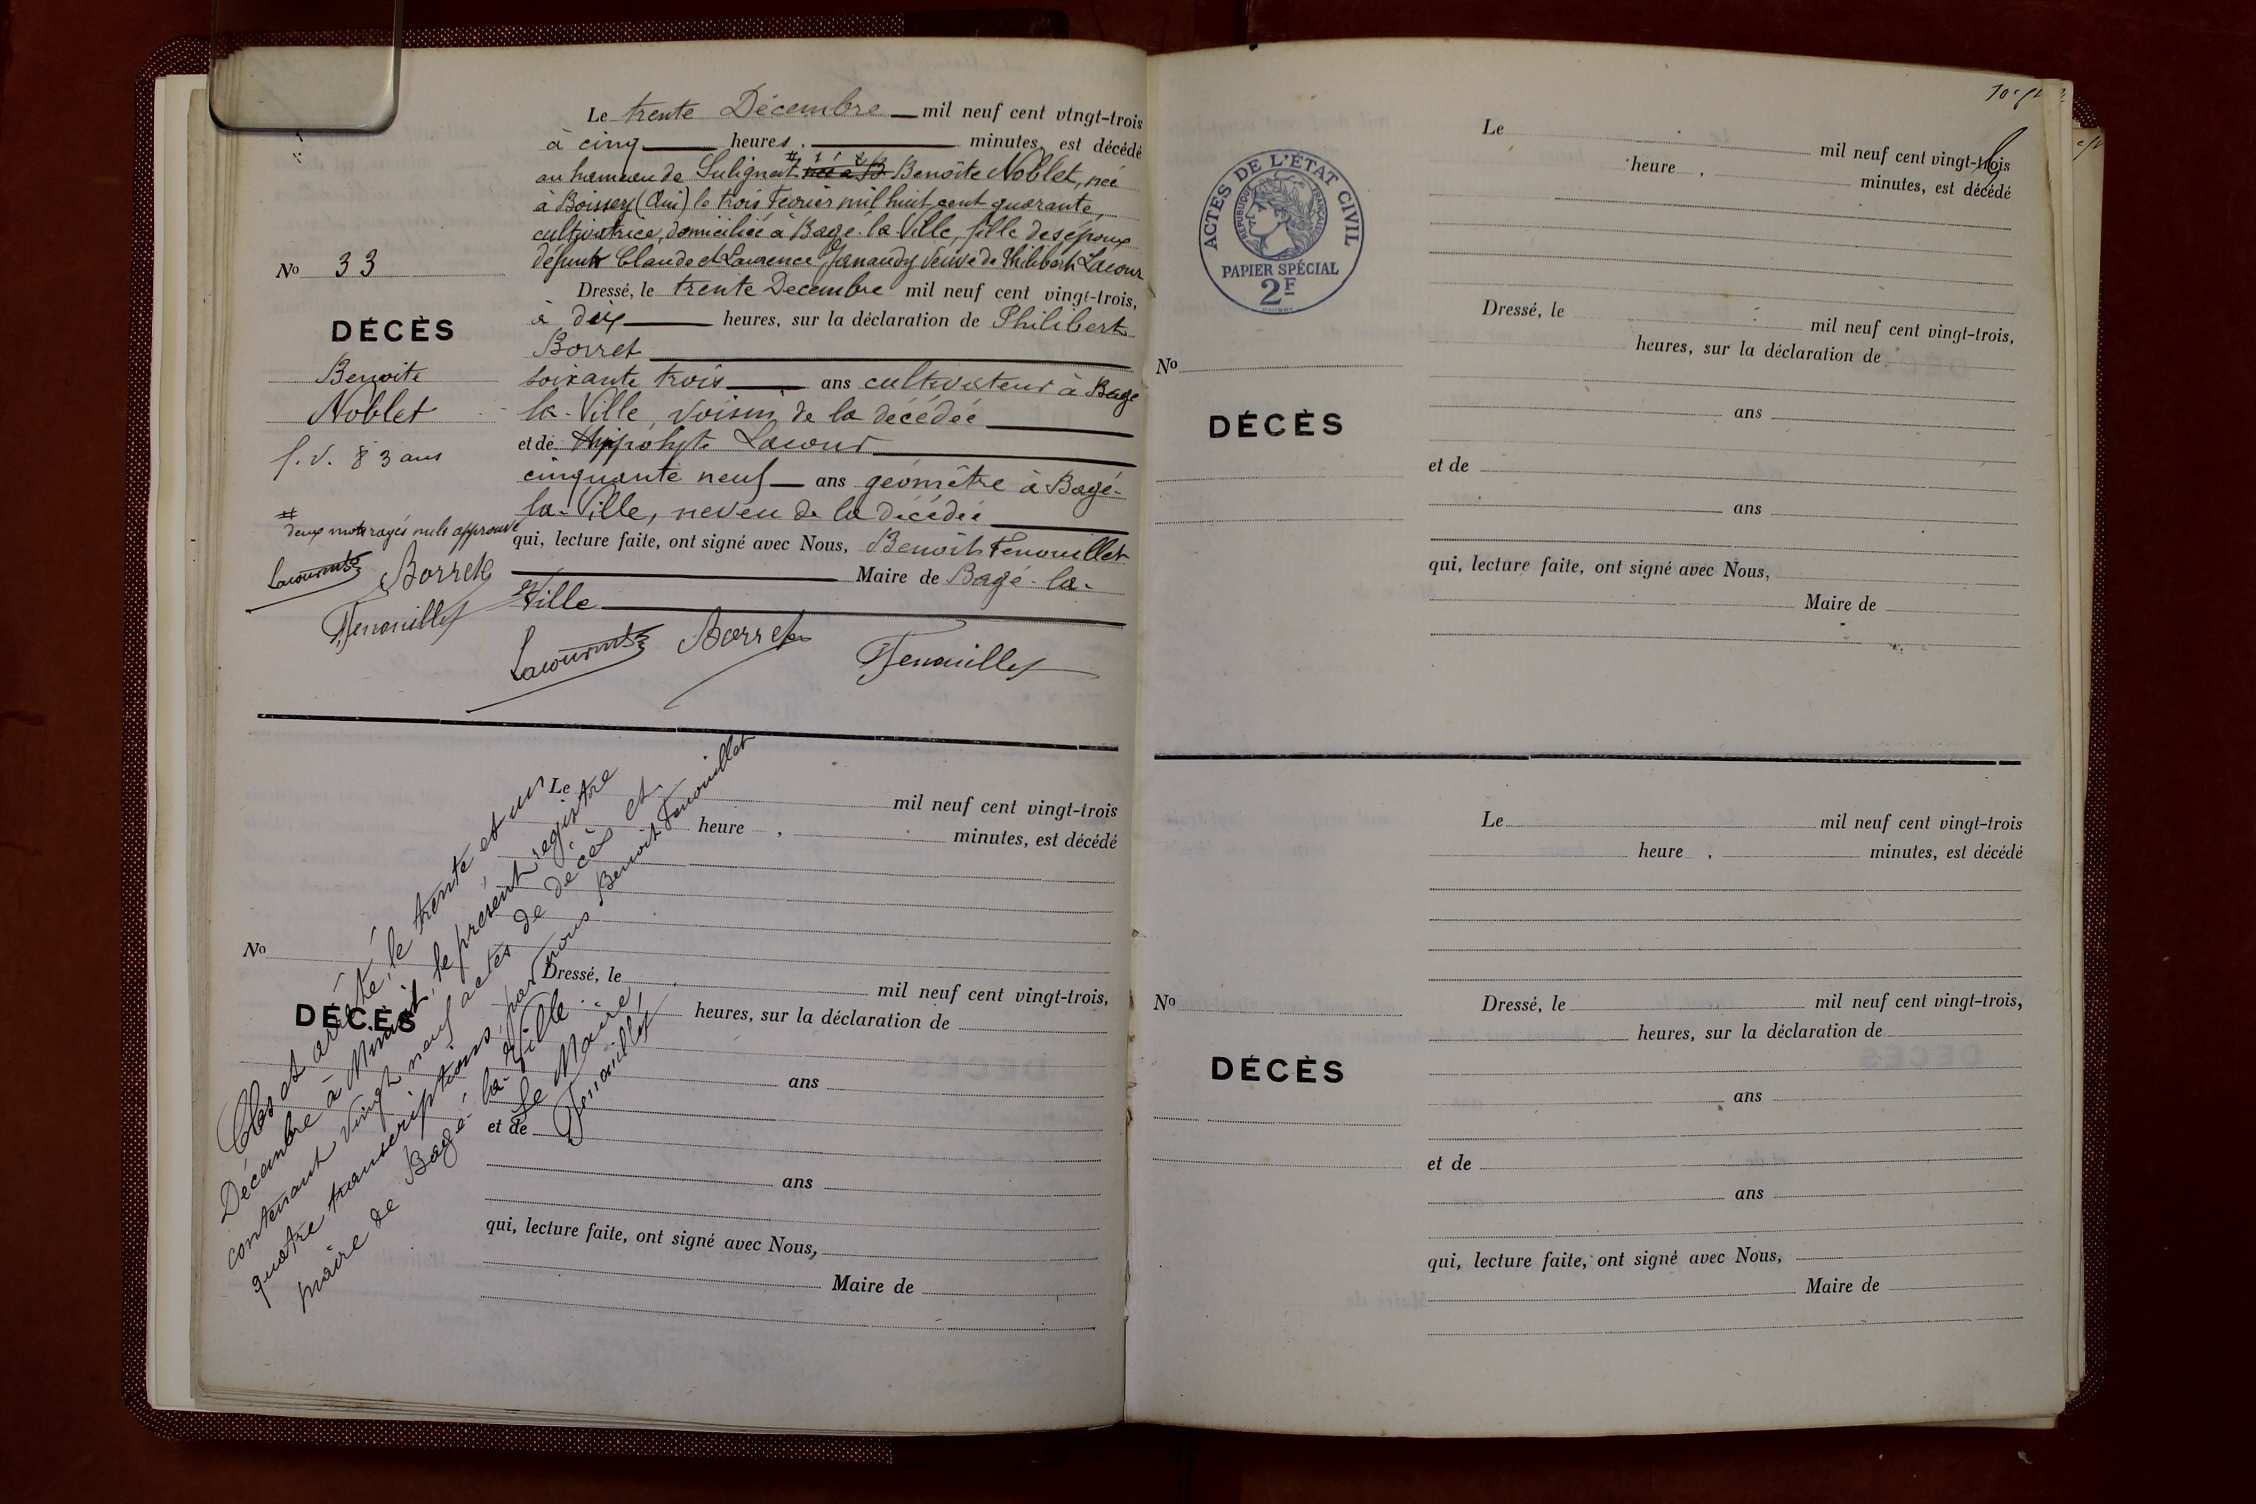 Le trente Décembre mil neuf cent vingt-trois
à cinq heures, minutes, est décédé
au hameau de Sulignat # née à B Benoîte Noblet, née
à Boissey (Ain) le trois Février mil huit cent quarante,
cultivatrice, domiciliée à Bagé-la-Ville, fille des époux
défunts Claude et Laurence Janaudy veuve de Philibert Lacour
No 33
Dressé, le trente Décembre mil neuf cent vingt-trois,
à dix heures, sur la déclaration de Philibert
DÉCÈS
Borret
Benoite
soixante trois ans cultivateur à Bagé
Noblet
la-Ville, voisin de la décédée
f. v. 83 ans
et de Hippolyte Lacour
cinquante neuf ans géomètre à Bagé-
la-Ville, neveu de la décédée
# deux mots rayés nuls approuvé
qui, lecture faite, ont signé avec Nous, Benoît Fenouillet
Borret
Maire de Bagé-la-
Fenouillet
Ville
Borret Fenouillet
Clos et arrêté, le trente et un
Décembre à Minuit, le présent registre
contenant vingt neuf actes de décès et
quatre transcriptions, par nous Benoit Fenouillet
maire de Bagé-la-Ville.
Le Maire,
Fenouillet
Le mil neuf cent vingt-trois
heure , minutes, est décédé
No
Dressé, le mil neuf cent vingt-trois,
heures, sur la déclaration de
DÉCÈS
ans
et de
ans
qui, lecture faite, ont signé avec Nous,
Maire de
ACTES DE L'ÉTAT CIVIL
RÉPUBLIQUE FRANÇAISE
PAPIER SPÉCIAL
2F
Le mil neuf cent vingt-trois
heure , minutes, est décédé
Dressé, le mil neuf cent vingt-trois,
heures, sur la déclaration de
No
DÉCÈS
ans
et de
ans
qui, lecture faite, ont signé avec Nous,
Maire de
Le mil neuf cent vingt-trois
heure , minutes, est décédé
No
Dressé, le mil neuf cent vingt-trois,
heures, sur la déclaration de
DÉCÈS
ans
et de
ans
qui, lecture faite, ont signé avec Nous,
Maire de